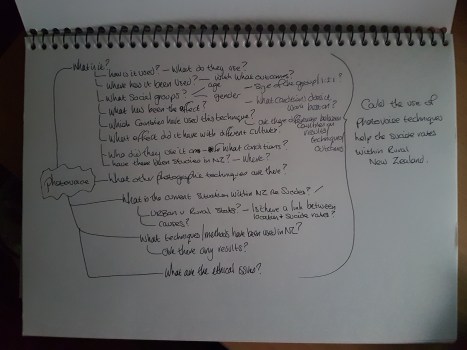 What is it?
how is it used? - What do they use?
Where has it been used? - With what outcomes?
What social groups?
age
gender
Size of the group?
What has been the effect?
What countries does it
Which Countries have used this technique?
are there difference between
countries in
results/
techniques/
outcomes
What effect did it have with different cultures?
Who did they use it on - for what conditions?
have there been studies in NZ? - Where?
photovoice
What other photographic techniques are there?
What is the current situation within NZ re Suicide?
Urban v Rural stats? - Is there a link between
location + suicide rates?
causes?
What techniques/methods have been used in NZ?
are there any results?
What are the ethical issues?
Could the use of
photovoice techniques
help the suicide rates
within Rural
New Zealand.